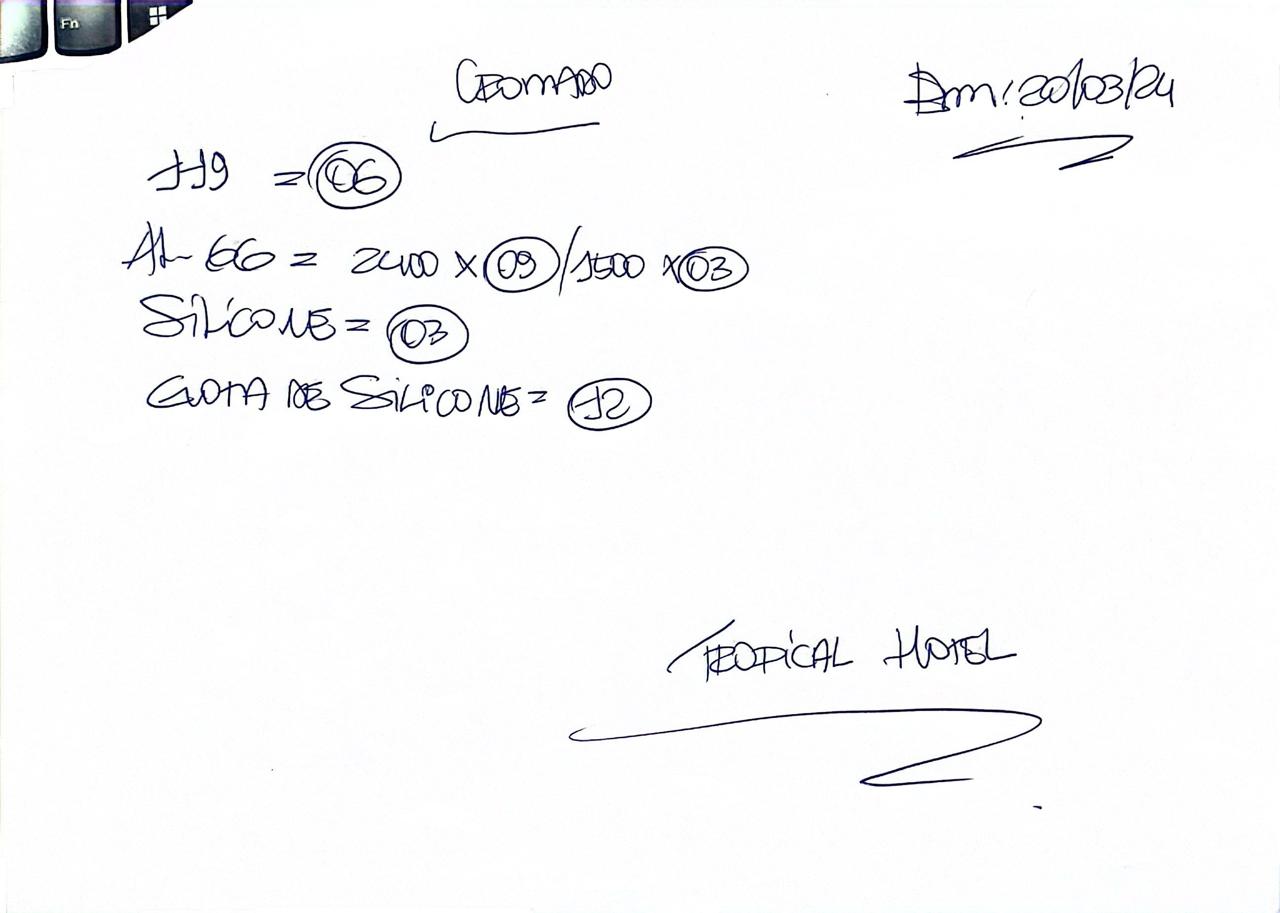 Fn
CROMADO Em: 20/03/24
119 = 06
AL 66 = 2400 x 09 / 1500 x 03
SILICONE = 03
GOTA DE SILICONE = 12
TROPICAL HOTEL